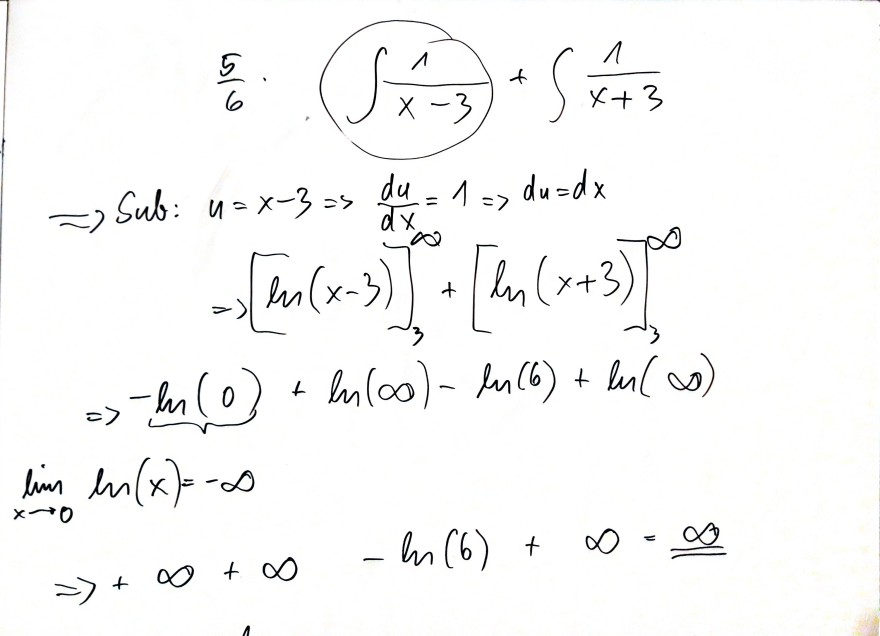 5/6 · ∫ 1/(x-3) + ∫ 1/(x+3)
=> Sub: u = x-3 => du/dx = 1 => du=dx
=> [ln(x-3)]₃^∞ + [ln(x+3)]₃^∞
=> -ln(0) + ln(∞) - ln(6) + ln(∞)
lim x→0 ln(x) = -∞
=> + ∞ + ∞ - ln(6) + ∞ = ∞